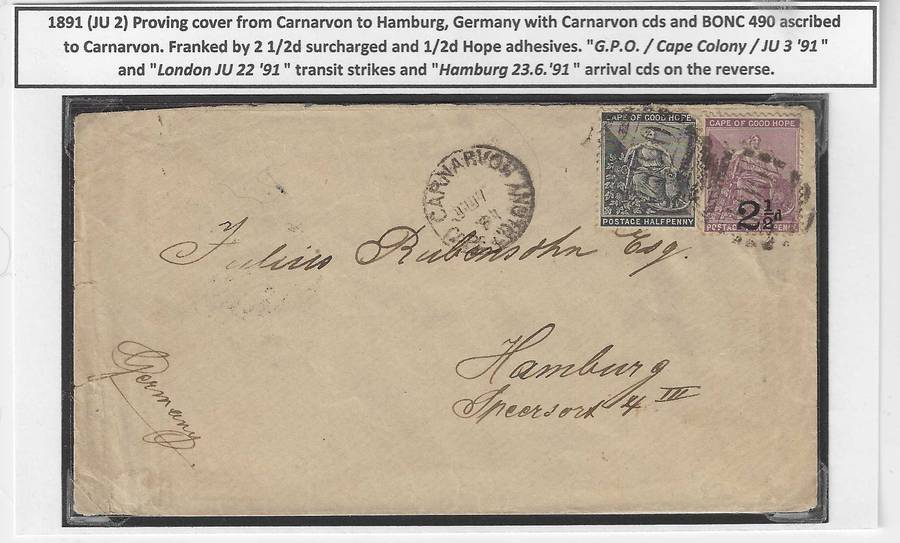 1891 (JU 2) Proving cover from Carnarvon to Hamburg, Germany with Carnarvon cds and BONC 490 ascribed
to Carnarvon. Franked by 2 1/2d surcharged and 1/2d Hope adhesives. "G.P.O. / Cape Colony / JU 3 '91"
and "London JU 22 '91" transit strikes and "Hamburg 23.6.'91" arrival cds on the reverse.
CAPE OF GOOD HOPE
POSTAGE HALFPENNY
CAPE OF GOOD HOPE
2½d
CARNARVON
Julius Rubensohn Esq.
Hamburg
Speersort 4 III
Germany